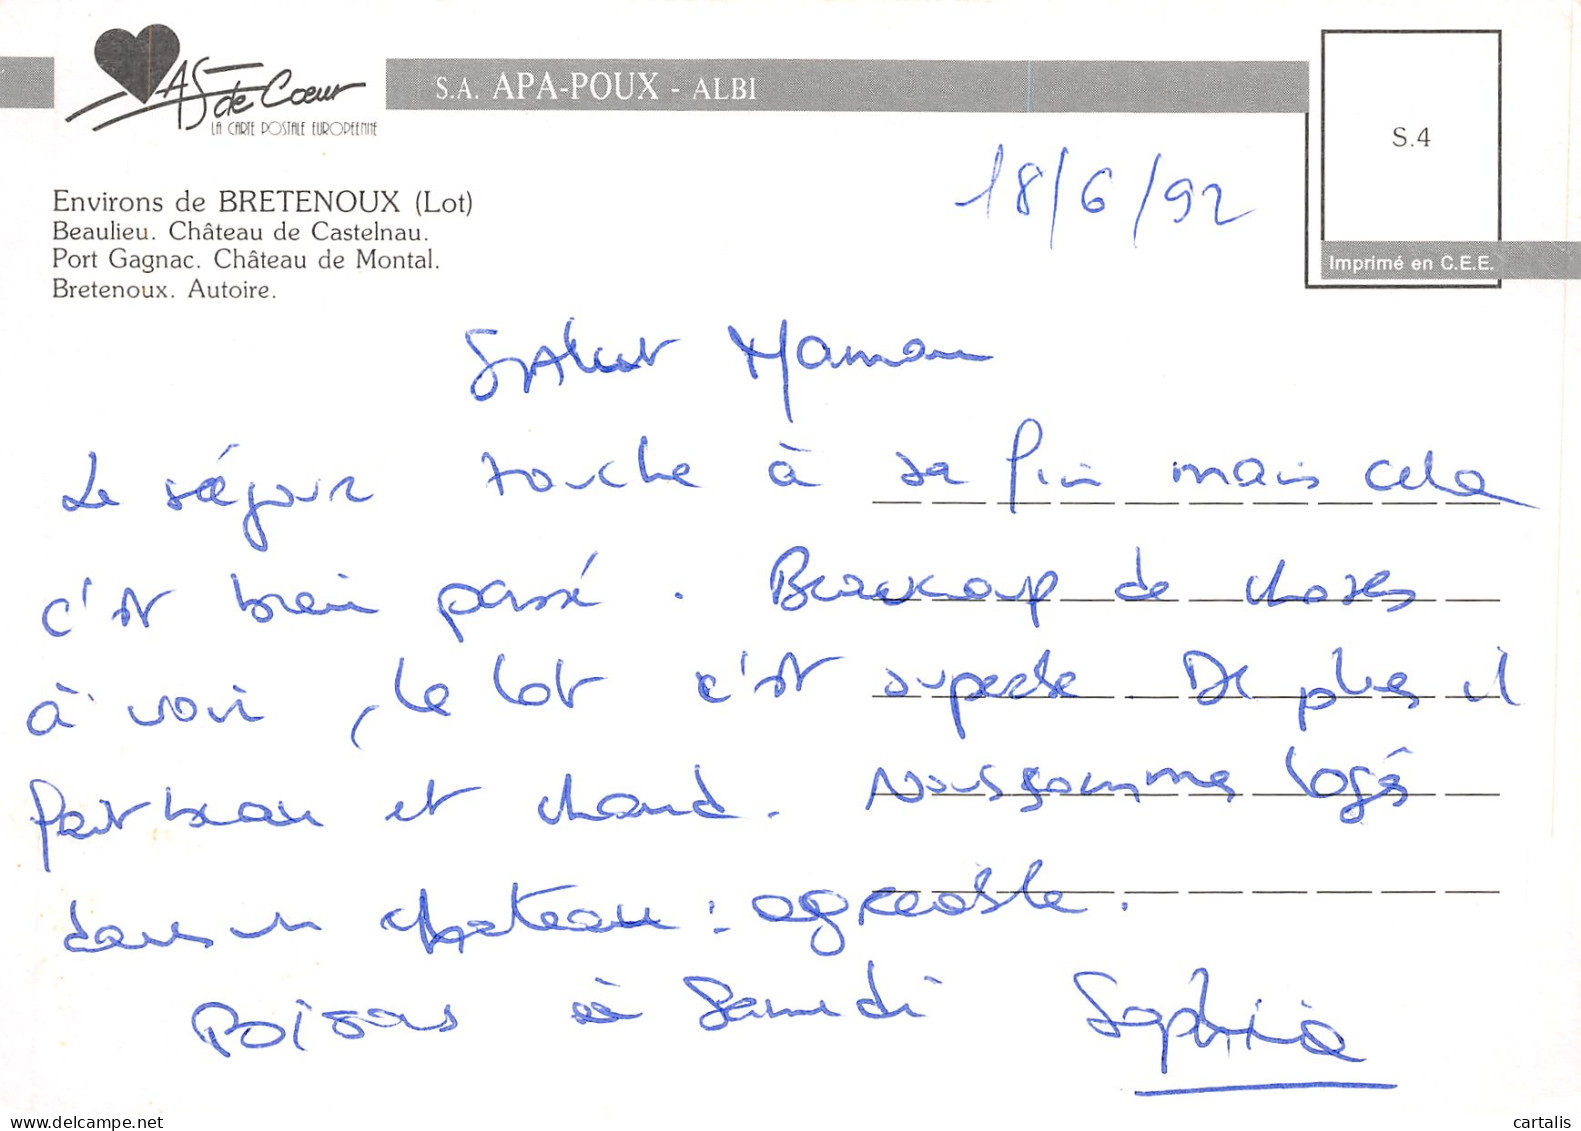 AS de Cœur
LA CARTE POSTALE EUROPEENNE
S.A. APA-POUX - ALBI
S.4
Imprimé en C.E.E.
Environs de BRETENOUX (Lot)
Beaulieu. Château de Castelnau.
Port Gagnac. Château de Montal.
Bretenoux. Autoire.
18/6/92
Salut Maman
Le séjour touche à sa fin mais cela
c'est bien passé. Beaucoup de choses
à voir, le lot c'est superbe. De plus il
fait beau et chaud. Nous sommes logés
dans un chateau : agreable.
Boisous à Samedi Sophie
cartalis